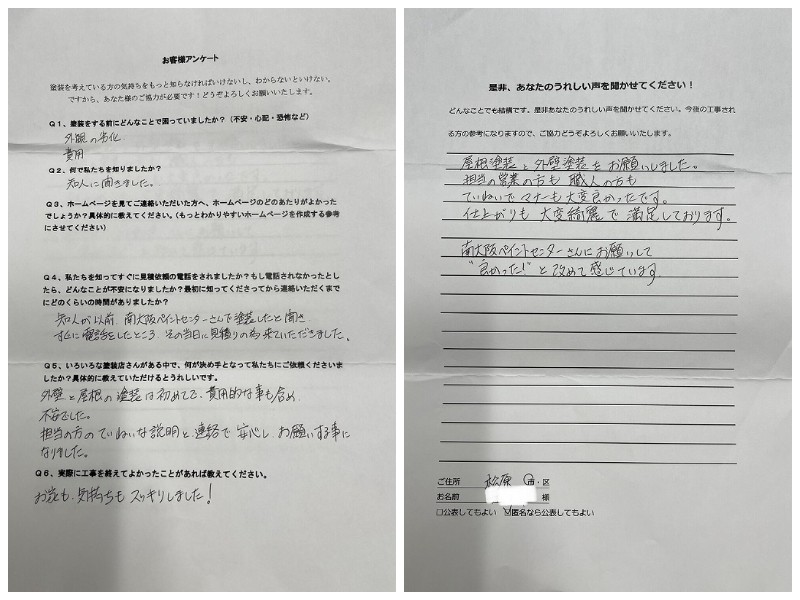 お客様アンケート
塗装を考えている方の気持ちをもっと知らなければいけないし、わからないといけない。
ですから、あなた様のご協力が必要です！どうぞよろしくお願いいたします。
Q１、塗装をする前にどんなことで困っていましたか？（不安・心配・恐怖など）
外観の劣化
費用
Q２、何で私たちを知りましたか？
知人に聞きました。
Q３、ホームページを見てご連絡いただいた方へ、ホームページのどのあたりがよかった
でしょうか？具体的に教えてください。（もっとわかりやすいホームページを作成する参考
にさせてください）
Q４、私たちを知ってすぐに見積依頼の電話をされましたか？もし電話されなかったとし
たら、どんなことが不安になりましたか？最初に知ってくださってから連絡いただくまで
にどのくらいの時間がありましたか？
知人が以前、南大阪ペイントセンターさんで塗装したと聞き、
すぐに電話をしたところ、その当日に見積りの為来ていただきました。
Q５、いろいろな塗装店さんがある中で、何が決め手となって私たちにご依頼くださいま
したか？具体的に教えていただけるとうれしいです。
外壁と屋根の塗装は初めてで、費用的な事も含め
不安でした。
担当の方のていねいな説明と、連絡で安心し、お願いする事に
なりました。
Q６、実際に工事を終えてよかったことがあれば教えてください。
お家も、気持ちもスッキリしました！
是非、あなたのうれしい声を聞かせてください！
どんなことでも結構です。是非あなたのうれしい声を聞かせてください。今後の工事され
る方の参考になりますので、ご協力どうぞよろしくお願いいたします。
屋根塗装と外壁塗装をお願いしました。
担当の営業の方も職人の方も
ていねいでマナーも大変良かったです。
仕上がりも大変綺麗で満足しております。
南大阪ペイントセンターさんにお願いして
"良かった!"と改めて感じています。
ご住所 松原 市・区
お名前 様
□公表してもよい ☑匿名なら公表してもよい